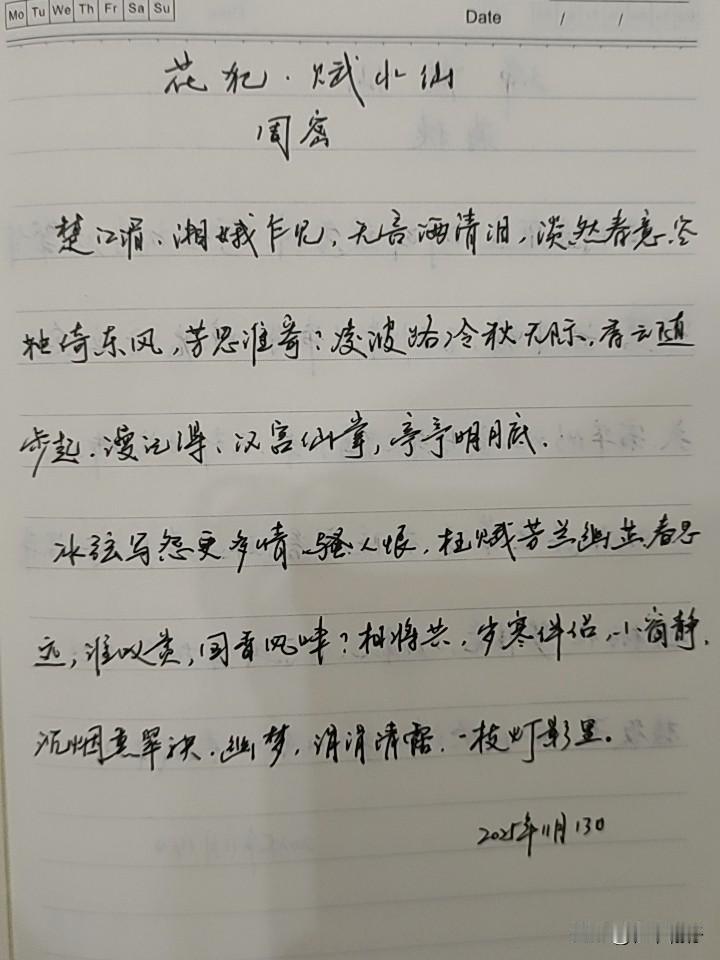 Mo Tu We Th Fr Sa Su
Date / /
花犯·赋水仙
周密
楚江湄、湘娥乍见,无言洒清泪,淡然春意。空
独倚东风,芳思谁寄?凌波路冷秋无际,香云随
步起、漫记得、汉宫仙掌,亭亭明月底.
冰弦写怨更多情,骚人恨,枉赋芳兰幽芷.春思
远,谁叹赏,国香风味?相将共,岁寒伴侣,小窗静,
沉烟熏翠袂.幽梦,涓涓清露.一枝灯影里。
2025年11月13日